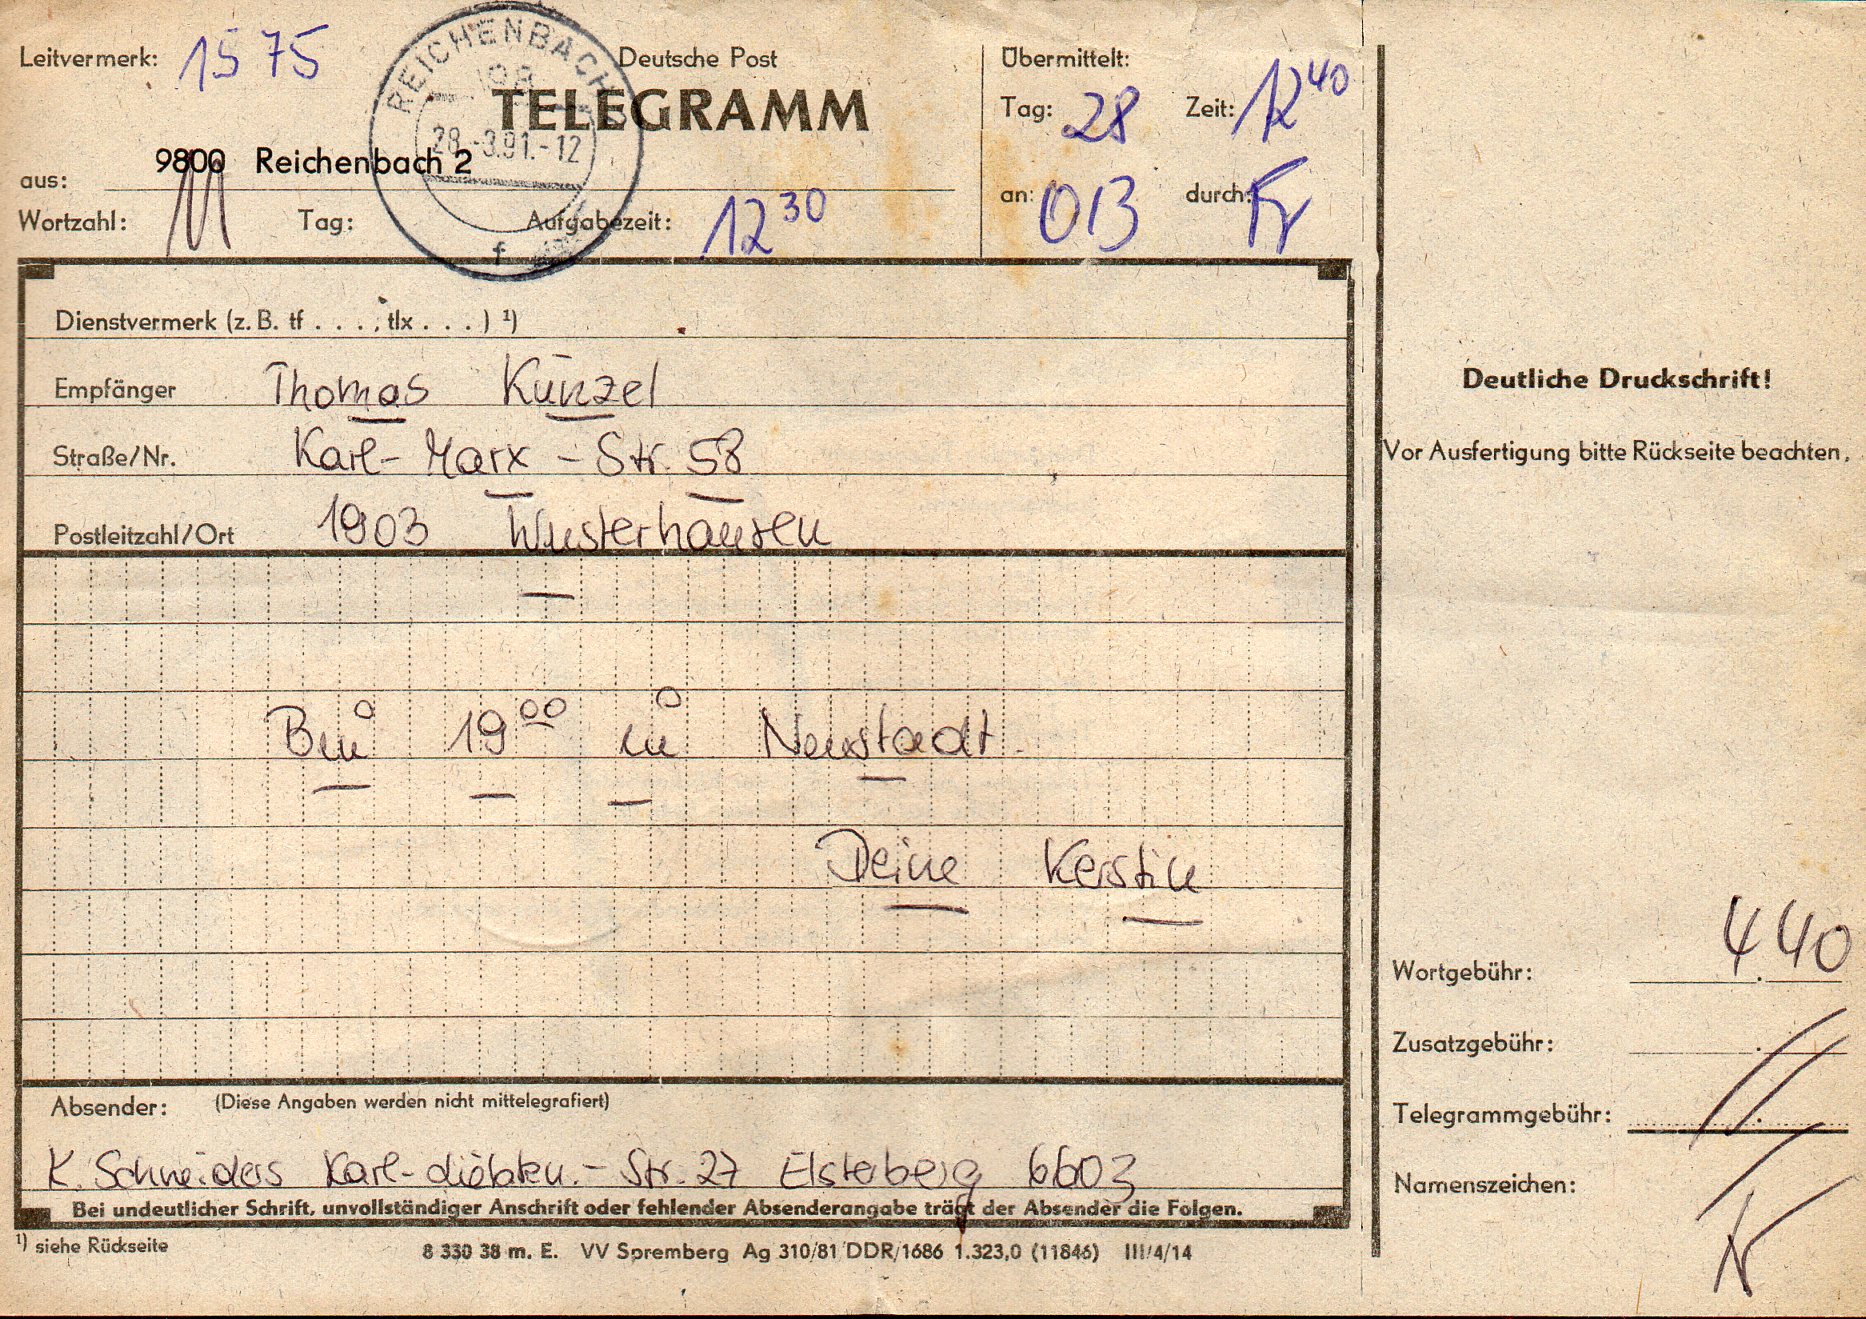 Leitvermerk: 1575
Deutsche Post
TELEGRAMM
REICHENBACH
28.-3.91.-12
f
aus: 9800 Reichenbach 2
Wortzahl: 11 Tag: Aufgabezeit: 12 30
Übermittelt:
Tag: 28 Zeit: 12 40
an: 013 durch: Fr
Dienstvermerk (z. B. tf . . . ; tlx . . . ) ¹)
Empfänger Thomas Künzel
Straße/Nr. Karl-Marx-Str. 58
Postleitzahl/Ort 1903 Wusterhausen
Bin 19 00 in Neustadt.
Deine Kerstin
Absender: (Diese Angaben werden nicht mittelegrafiert)
K. Schneiders Karl- -Str. 27 Elsterberg 6603
Bei undeutlicher Schrift, unvollständiger Anschrift oder fehlender Absenderangabe trägt der Absender die Folgen.
¹) siehe Rückseite
8 330 38 m. E. VV Spremberg Ag 310/81 DDR/1686 1.323,0 (11846) III/4/14
Deutliche Druckschrift!
Vor Ausfertigung bitte Rückseite beachten.
Wortgebühr: 4.40
Zusatzgebühr:
Telegrammgebühr:
Namenszeichen: